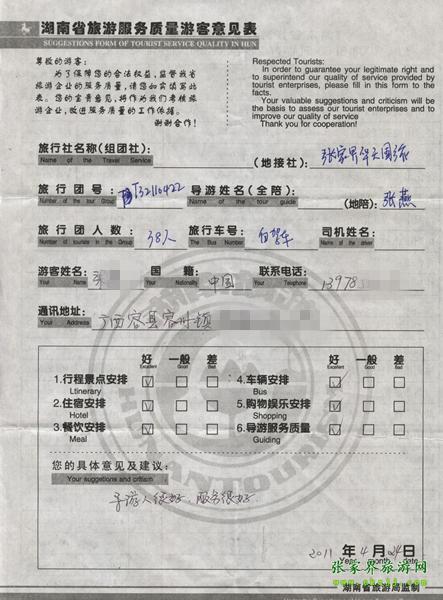 湖南省旅游服务质量游客意见表
SUGGESTIONS FORM OF TOURIST SERVICE QUALITY IN HUN
尊敬的游客:
为了保障您的合法权益,监督我省
旅游企业的服务质量,请您如实填写此
表。您的宝贵意见,将作为我们考核旅
游企业,改进服务质量的工作依据。
谢谢合作!
Respected Tourists:
In order to guarantee your legitimate right and
to superintend our quality of service provided by
tourist enterprises, please fill in this form to the
facts.
Your valuable suggestions and criticism will
be the basis to assess our tourist enterprises and
to improve our quality of service
Thank you for cooperation!
旅行社名称(组团社): (地接社): 张家界中天国旅
Name of the Travel Service
旅行团号: T32110422 导游姓名(全陪) (地陪): 张燕
Number of the tour Group Name of the tour guide
旅行团人数: 38人 旅行车号: 自驾车 司机姓名:
Number of tourists in the Group The Bus Number Name of the driver
游客姓名: 国籍: 中国 联系电话: 13978
Your Name Your Nationality Your Telephone
通讯地址: 广西容县容州镇
Your Address
好 一般 差 好 一般 差
Excellent Good Bad Excellent Good Bad
1.行程景点安排 ☑ □ □ 4.车辆安排 ☑ □ □
Ltinerary Bus
2.住宿安排 ☑ □ □ 5.购物娱乐安排 ☑ □ □
Hotel Shopping
3.餐饮安排 ☑ □ □ 6.导游服务质量 ☑ □ □
Meal Guiding
您的具体意见及建议:
Your suggestions and critism
导游人很好,服务很好
2011 年 4 月 24 日
Year month date
张家界旅游网
湖南省旅游局监制